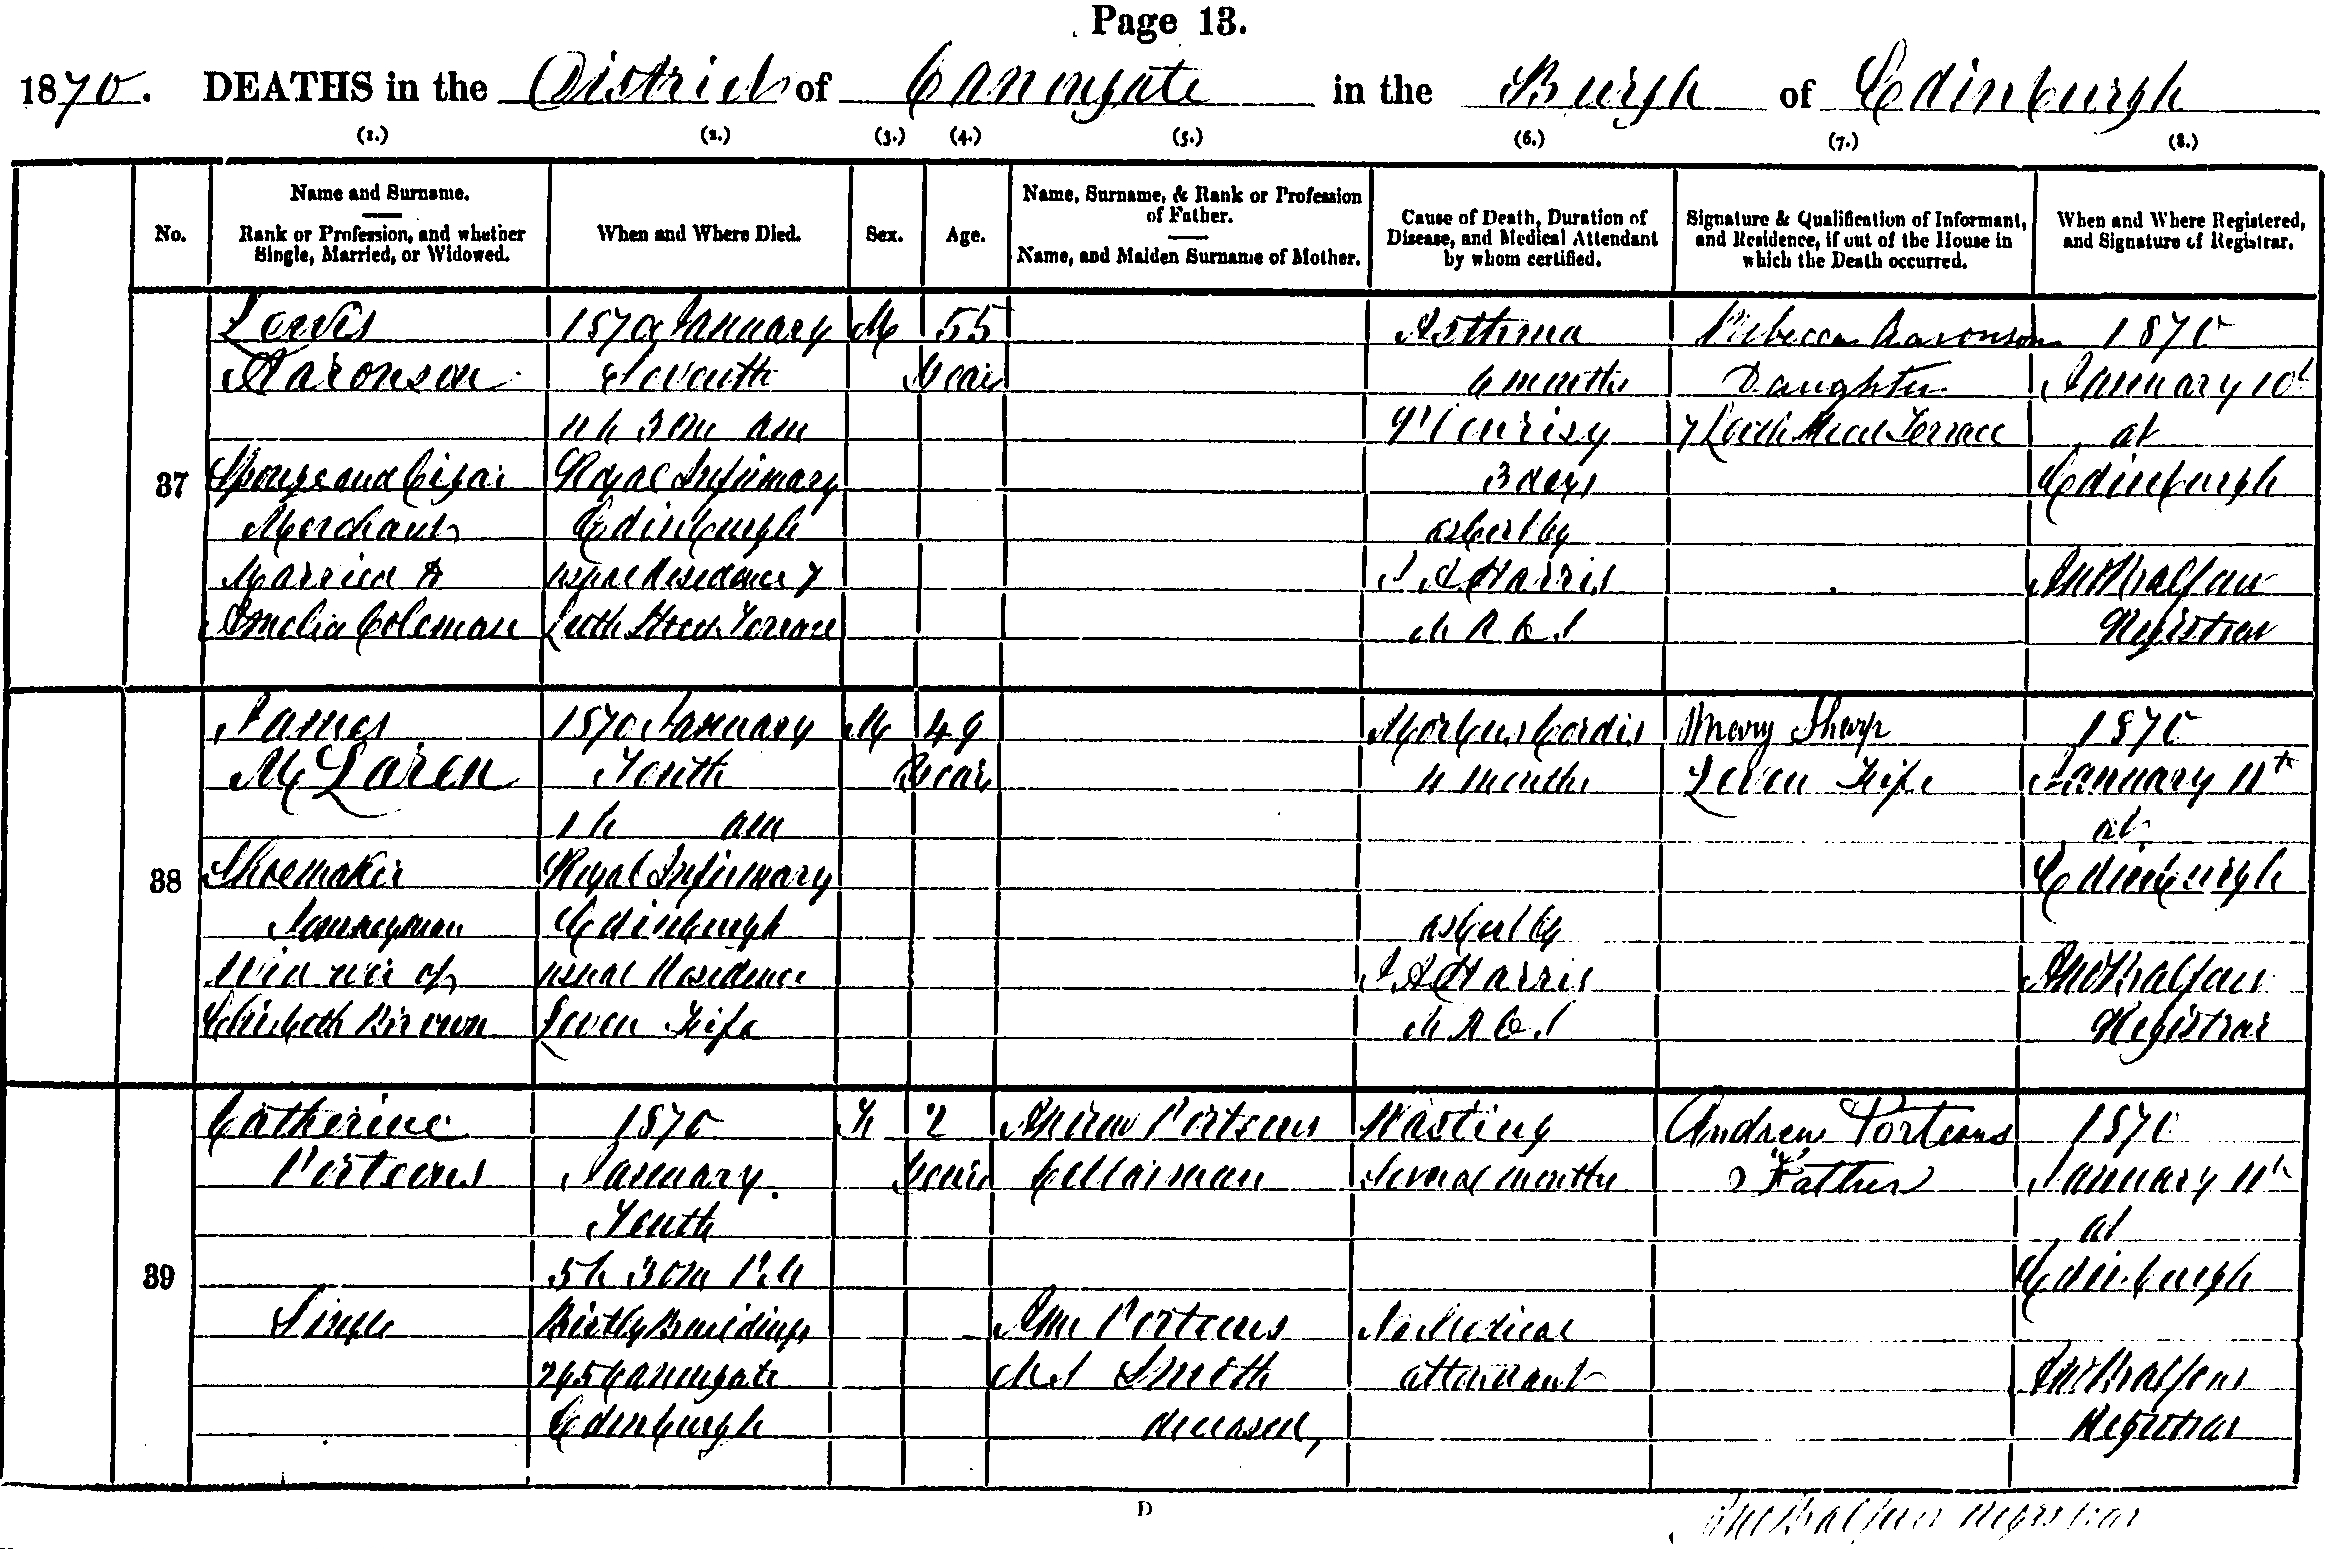 Page 13.
1870. DEATHS in the District of Canongate in the Burgh of Edinburgh
(1.) (2.) (3.) (4.) (5.) (6.) (7.) (8.)
No.
Name and Surname.
Rank or Profession, and whether
Single, Married, or Widowed.
When and Where Died.
Sex.
Age.
Name, Surname, & Rank or Profession
of Father.
Name, and Maiden Surname of Mother.
Cause of Death, Duration of
Disease, and Medical Attendant
by whom certified.
Signature & Qualification of Informant,
and Residence, if out of the House in
which the Death occurred.
When and Where Registered,
and Signature of Registrar.
37
Lewis
Aaronson
Sponge and Cigar
Merchant
Married to
Amelia Coleman
1870 January
Seventh
11 h 30m am
Royal Infirmary
Edinburgh
usual Residence 7
Leith Street Terrace
M
55
Years
Asthma
6 months
Pleurisy
3 days
as cert by
J A Harris
M R C S
Rebecca Aaronson
Daughter
7 Leith Street Terrace
1870
January 10th
at
Edinburgh
Jno Balfour
Registrar
38
James
McLaren
Shoemaker
Journeyman
Widower of
Elizabeth Brown
1870 January
Tenth
1 h am
Royal Infirmary
Edinburgh
usual Residence
Leven Fife
M
49
Years
Morbus Cordis
11 months
as cert by
J A Harris
M R C S
Mary Sharp
Leven Fife
1870
January 11th
at
Edinburgh
Jno Balfour
Registrar
39
Catherine
Porteous
Single
1870
January
Tenth
5 h 30m P.M
Buildings
265 Canongate
Edinburgh
F
2
Years
Andrew Porteous
Cellarman
Ann Porteous
M S Smith
deceased,
Wasting
Several months
No Medical
attendant
Andrew Porteous
Father
1870
January 11th
at
Edinburgh
Jno Balfour
Registrar
D
Jno Balfour Registrar